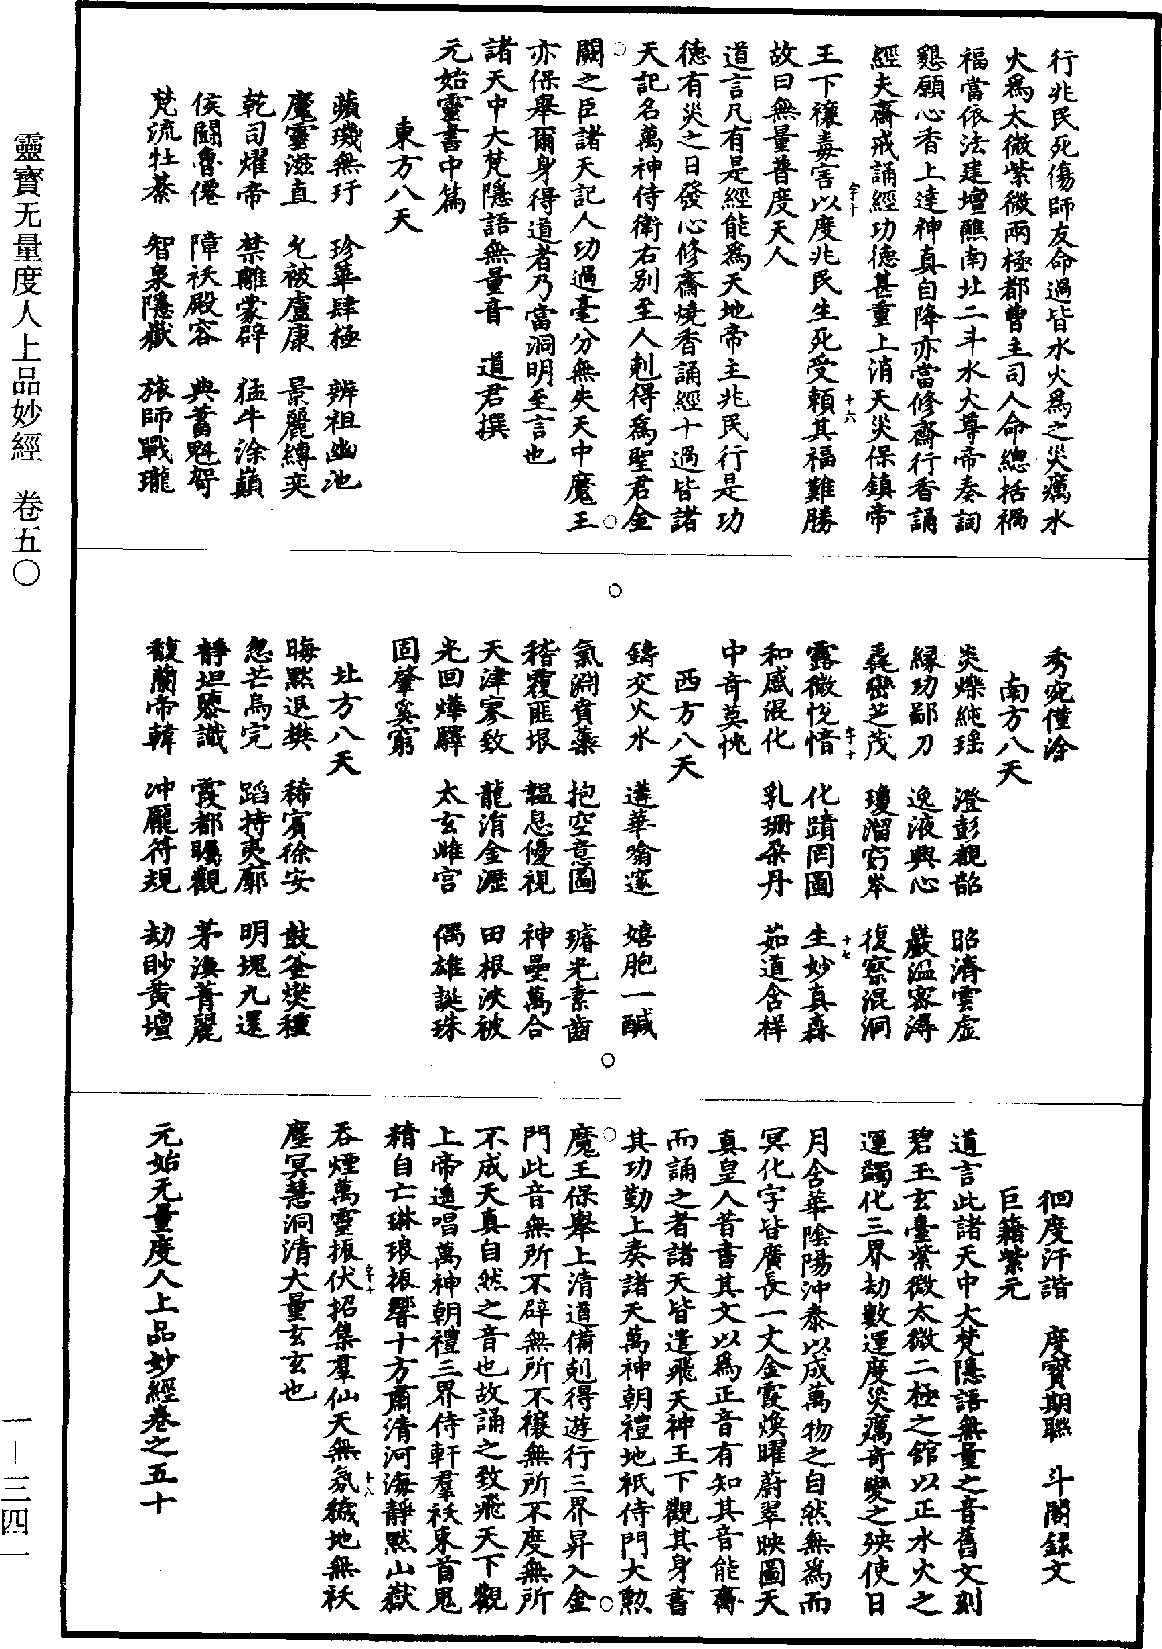 行兆民死傷師友命過皆水火爲之災癘水
火爲太微紫微兩極都曹主司人命總括禍
福當依法建壇醮南北二斗水火尊帝奏詞
懇願心香上達神真自降亦當修齋行香誦
經夫齋戒誦經功德甚重上消天災保鎮帝
王下禳毒害以度兆民生死受賴其福難勝
故曰無量普度天人
道言凡有是經能爲天地帝主兆民行是功
德有災之日發心修齋燒香誦經十過皆諸
天記名萬神侍衛右別至人剋得爲聖君金
闕之臣諸天記人功過毫分無失天中魔王
亦保舉爾身得道者乃當洞明至言也
諸天中大梵隱語無量音 道君撰
元始靈書中篇
東方八天
蘋璣無玗 珍華肆極 辨祖幽池
魔靈溢直 允被盧康 景麗縛奕
乾司燿帝 禁雕蒙辟 猛牛涂巔
侯闘魯僊 障祅殿容 典蓄魁
梵流牡綦 智泉隱嶽 旅師戰瓏
秀宛僅洽
南方八天
炎爍純瑶 澄彭觀韶 昭濟雲虛
緣功鄙刀 逸液興心 嚴溫密潯
毳巒芝茂 瓊溜穷岑 復察混洞
露微悅愔 化蹟罔圖 生妙真森
和感混化 乳珊朶丹 茹道含样
中奇莫恍
西方八天
鑄交火水 蓮華喻邃 嬉胞一醎
氣淵賁蘂 抱空意圖 璿光素齒
稽覆匪垠 韞息優視 神壘萬合
天津寥致 龍洧金瀝 田根泱被
光回燁驛 太玄雌宮 偶雄誕珠
固肇奚窮
北方八天
晦黙退樊 稀賓徐安 鼓釜燓種
忽芒烏完 蹈持夷廓 明塊九還
靜坦黎讖 霞都矚觀 茅渙菁麗
馥蘭帝韓 冲龎符規 劫眇黄壇
徊度汗諧 度寶期聮 斗閣録文
巨籍紫元
道言此諸天中大梵隱語無量之音舊文刻
碧玉玄臺紫微太微二極之館以正水火之
運蠲化三界劫數運度災癘奇變之殃使日
月含華陰陽沖泰以成萬物之自然無爲而
冥化字皆廣長一丈金霞煥曜蔚翠映圖天
真皇人昔書其文以爲正音有知其音能齋
而誦之者諸天皆遣飛天神王下觀其身書
其功勤上奏諸天萬神朝禮地祇侍門大勲
魔王保舉上清道備剋得遊行三界昇入金
門此音無所不辟無所不禳無所不度無所
不成天真自然之音也故誦之致飛天下觀
上帝遙唱萬神朝禮三界侍軒羣祅束首鬼
精自亡琳琅振響十方肅清河海靜黙山嶽
吞煙萬靈振伏招集羣仙天無氛穢地無祅
塵冥慧洞清大量玄玄也
元始无量度人上品妙經卷之五十
靈寶无量度人上品妙經 卷五〇
一—三四一